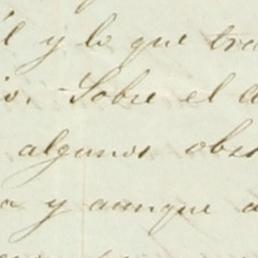 él y lo que tra
io. Sobre el a
algunos obse
a y aunque a